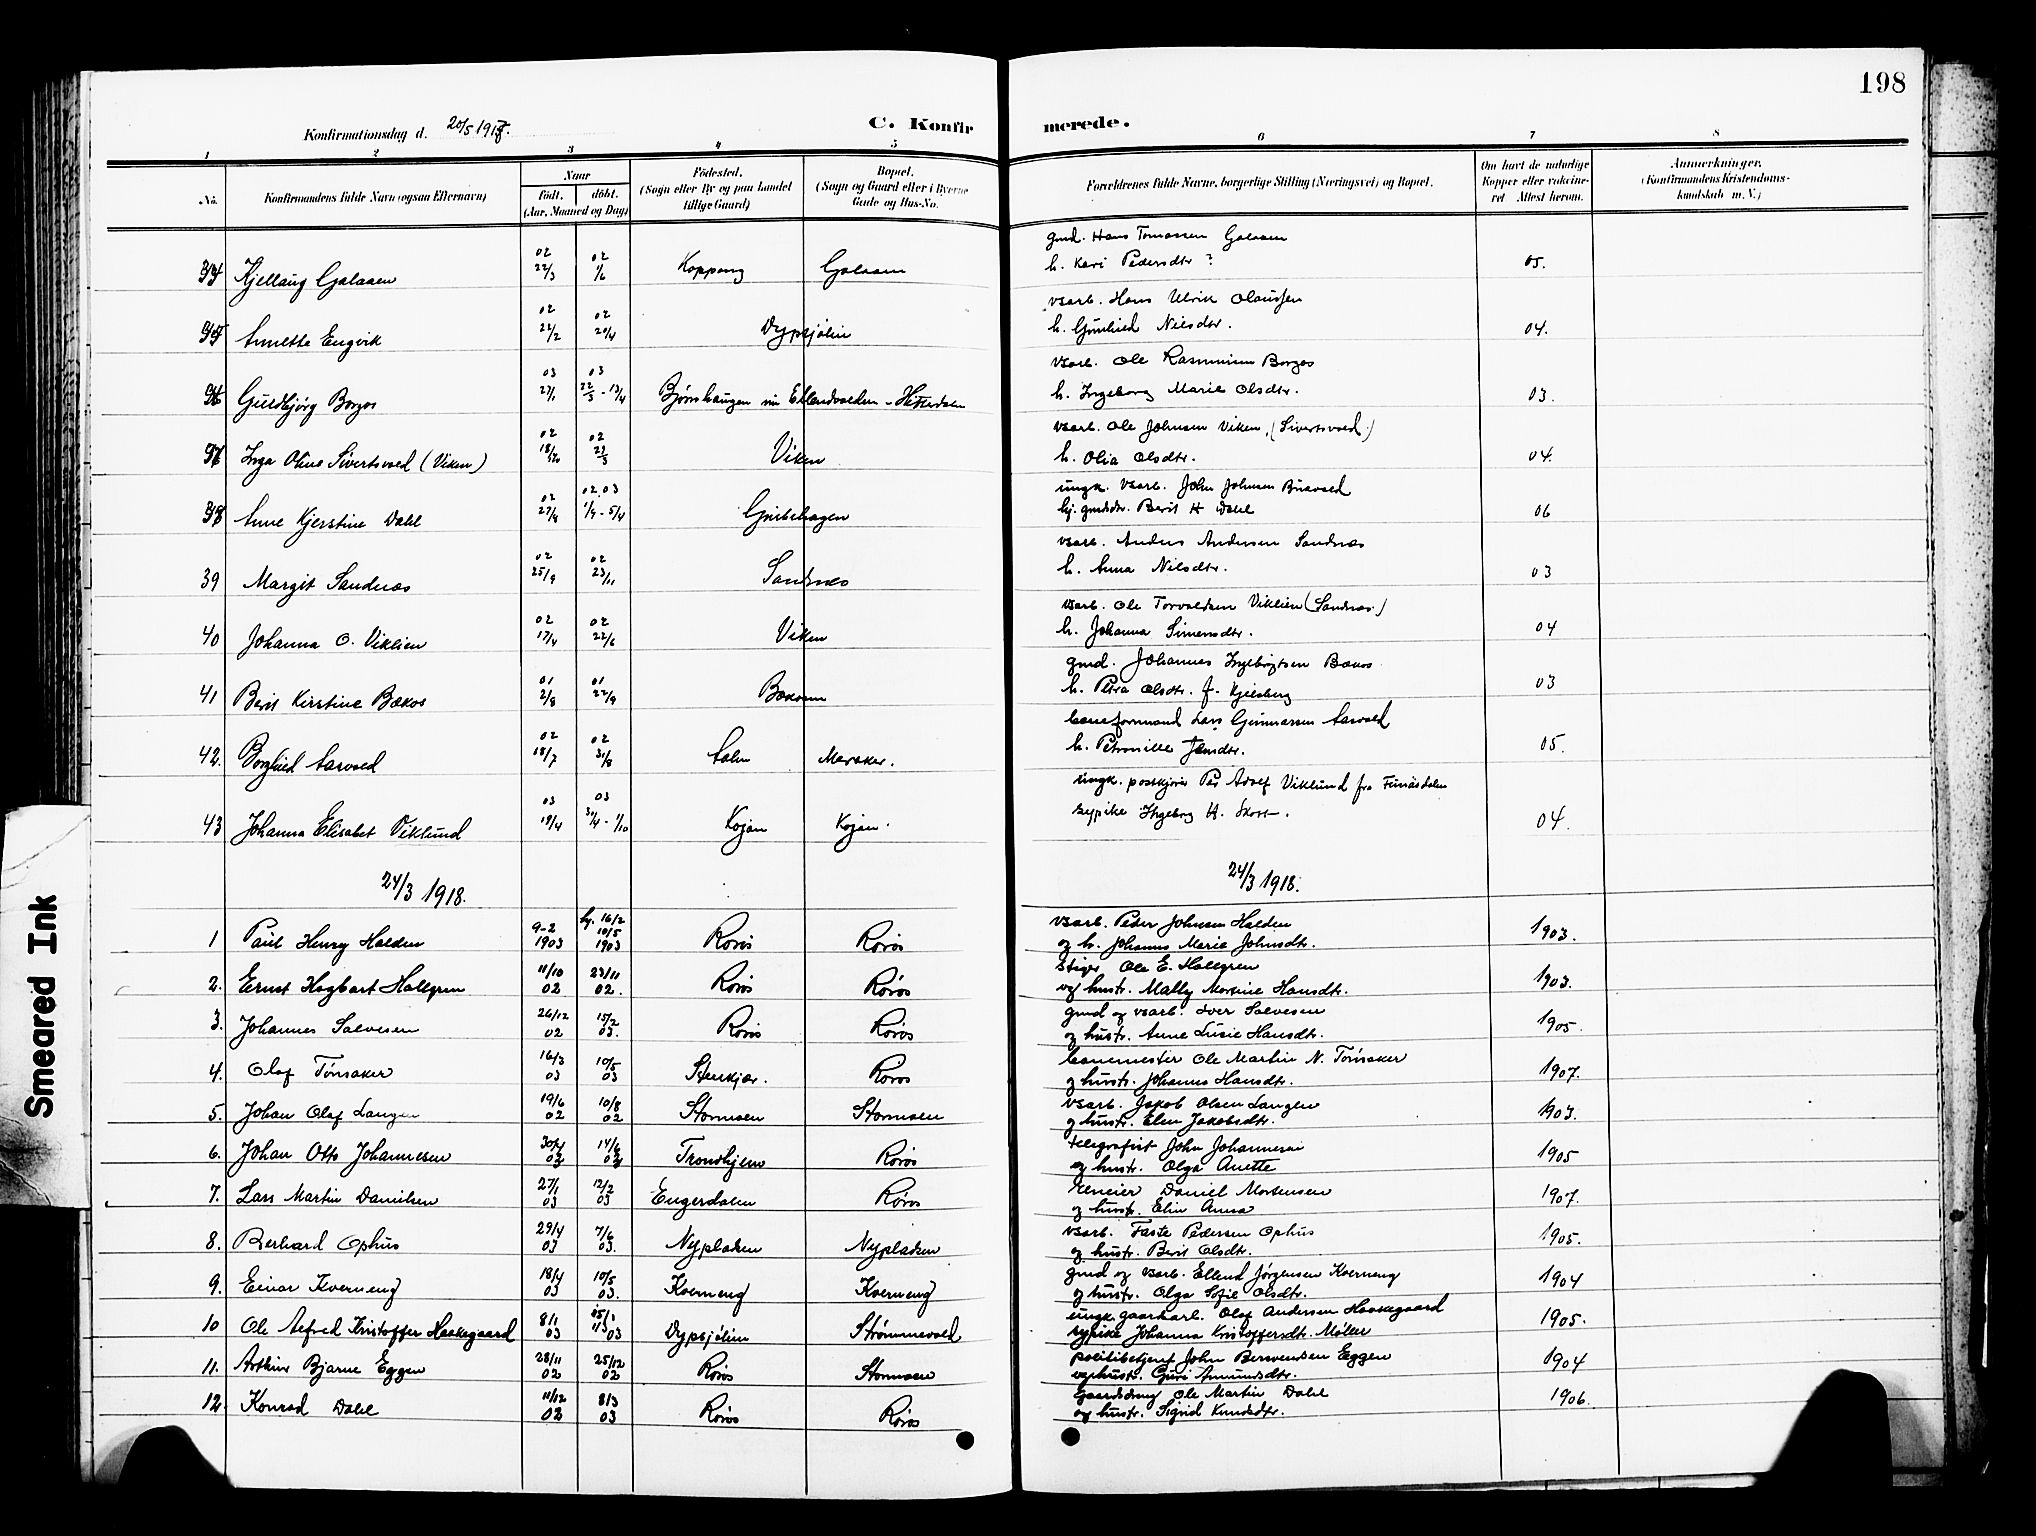 198
Konfirmationsdag d. 20/5 1917.
C. Konfirmerede.
1 2 3 4 5 6 7 8
No. Konfirmandens fulde Navn (ogsaa Efternavn)
Naar født. døbt. (Aar, Maaned og Dag)
Fødested. (Sogn eller By og paa Landet tillige Gaard)
Bopæl. (Sogn og Gaard eller i Byerne Gade og Hus-No.
Forældrenes fulde Navne, borgerlige Stilling (Næringsvei) og Bopæl.
Om havt de naturlige Kopper eller vakcineret. Attest herom.
Anmerkninger. (Konfirmandens Kristendomskundskab m. V.)
34 Kjellaug Galaaen 02 22/3 02 1/6 Koppang Galaaen
gmd. Hans Tomassen Galaaen
h. Kari Pedersdtr ? 05.
35 Annette Engvik 02 22/2 02 20/4 Dypsjølien
vsarb. Hans Ulrik Olaussen
h. Gunhild Nilsdtr. 04.
36 Guldbjørg Borgos 03 27/1 03 22/3 - 13/4 Bjørnhaugen Hitterdalen
vsarb. Ole Rasmussen Borgos
h. Ingeborg Marie Olsdtr. 03.
37 Inga Oline Sivertsvold (Viken) 02 18/1 02 23/3 Viken
vsarb. Ole Johnsen Viken, (Sivertsvold)
h. Olia Olsdtr. 04.
38 Anne Kjerstine Dahl 02 27/8 02.03 1/9 - 5/4 Grubehagen
ungk. vsarb. John Johnsen Busvold
pj. gmdsdtr. Berit H Dahl 06
39 Margit Sandnæs 02 25/9 02 23/11 Sandnæs
vsarb. Anders Andersen Sandnæs
h. Anna Nilsdtr. 03
40 Johanna O. Viklien 02 17/4 02 22/6 Viken
vsarb. Ole Torvaldsen Viklien (Sandnæs.)
h. Johanna Simensdtr. 04
41 Berit Kirstine Bækos 01 2/8 01 22/9 Bækosen
gmd. Johannes Ingebrigtsen Bækos
h. Petra Olsdtr. f. Kjelsberg 03
42. Borghild Aasvold 02 18/7 02 31/8 Aalen Meraker.
baneformand Lars Gunnarsen Aasvold
h. Petronille Jensdtr. 05.
43 Johanna Elisabet Viklund 03 19/4 03 30/4 - 1/10 Kojan Kojan.
ungk. postkjører Per Adolf Viklund fra Funäsdalen
sypike Ingeborg H. Skott. 04.
24/3 1918. 24/3 1918.
1 Paul Henry Halden 9-2 1903 hj. 16/2 10/5 1903 Røros Røros
vsarb. Peder Johnsen Halden
og h. Johanna Marie Johnsdtr. 1903.
2. Ernst Hagbart Hallgren 11/10 02 23/11 02. Røros Røros
Stiger Ole E. Hallgren
og hustr. Mally Marine Hansdtr. 1903.
3. Johannes Salvesen 26/12 02 15/2 03. Røros Røros
gmd og vsarb. Iver Salvesen
og hustr. Anne Lusie Hansdtr. 1905.
4. Olaf Tønsaker 16/3 03 10/5 03 Stenkjær. Røros
banemester Ole Martin N. Tønsaker
og hustr. Johanna Hansdtr. 1907.
5. Johan Olaf Langen 19/6 02 10/8 02 Stormoen Stormoen
vsarb. Jakob Olsen Langen
og hustr. Elen Jakobsdtr. 1903.
6. Johan Otto Johannesen 30/4 02 14/6 02 Trondhjem Røros
telegrafist John Johannesen
og hustr. Olga Anette 1905
7. Lars Martin Danielsen 27/1 03 12/2 03 Engerdalen Røros
Daniel Mortensen
og hustr. Elin Anna 1907.
8. Berhard Ophus 29/4 03 7/6 03. Nypladsen Nypladsen
vsarb. Faste Pedersen Ophus
og hustr. Berit Olsdtr. 1905.
9. Einar Kverneng 18/4 03 10/5 03. Kverneng Kverneng
gmd og vsarb. Ellend Jørgensen Kverneng
og hustr. Olga Sofie Olsdtr. 1904
10 Ole Alfred Kristoffer Haakegaard 8/1 03 03 Dypsjølien Strømmevold
ungk. gaardkarl. Olaf Andersen Haakegaard
sypike Johanna Kristoffersdtr. Møller 1905.
11. Arthur Bjarne Eggen 28/11 02 25/12 02 Røros Stormoen
politibetjent John Berventsen Eggen
og hustr. Guri Amundsdtr. 1904
12. Konrad Dahl 11/12 02 8/3 03 Røros Røros
Gaardsdreng Ole Martin Dahl
og hustr. Sigrid Knudsdtr. 1906.
Smeared Ink